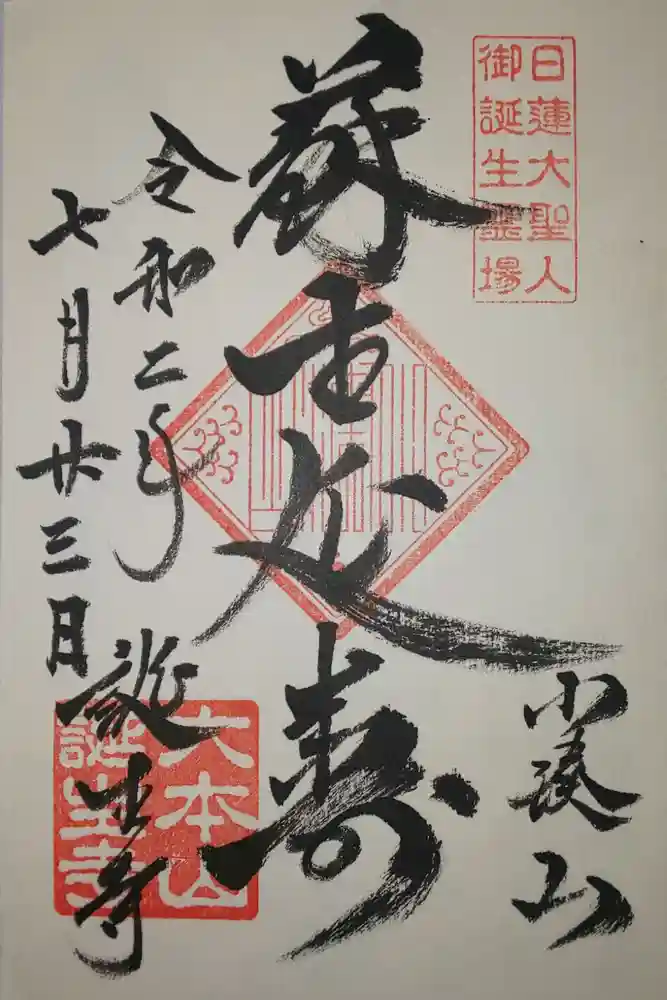 日蓮大聖人
御誕生霊場
小湊山
蘇生延寿
令和二年
七月廿三日
誕生寺
大本山
誕生寺